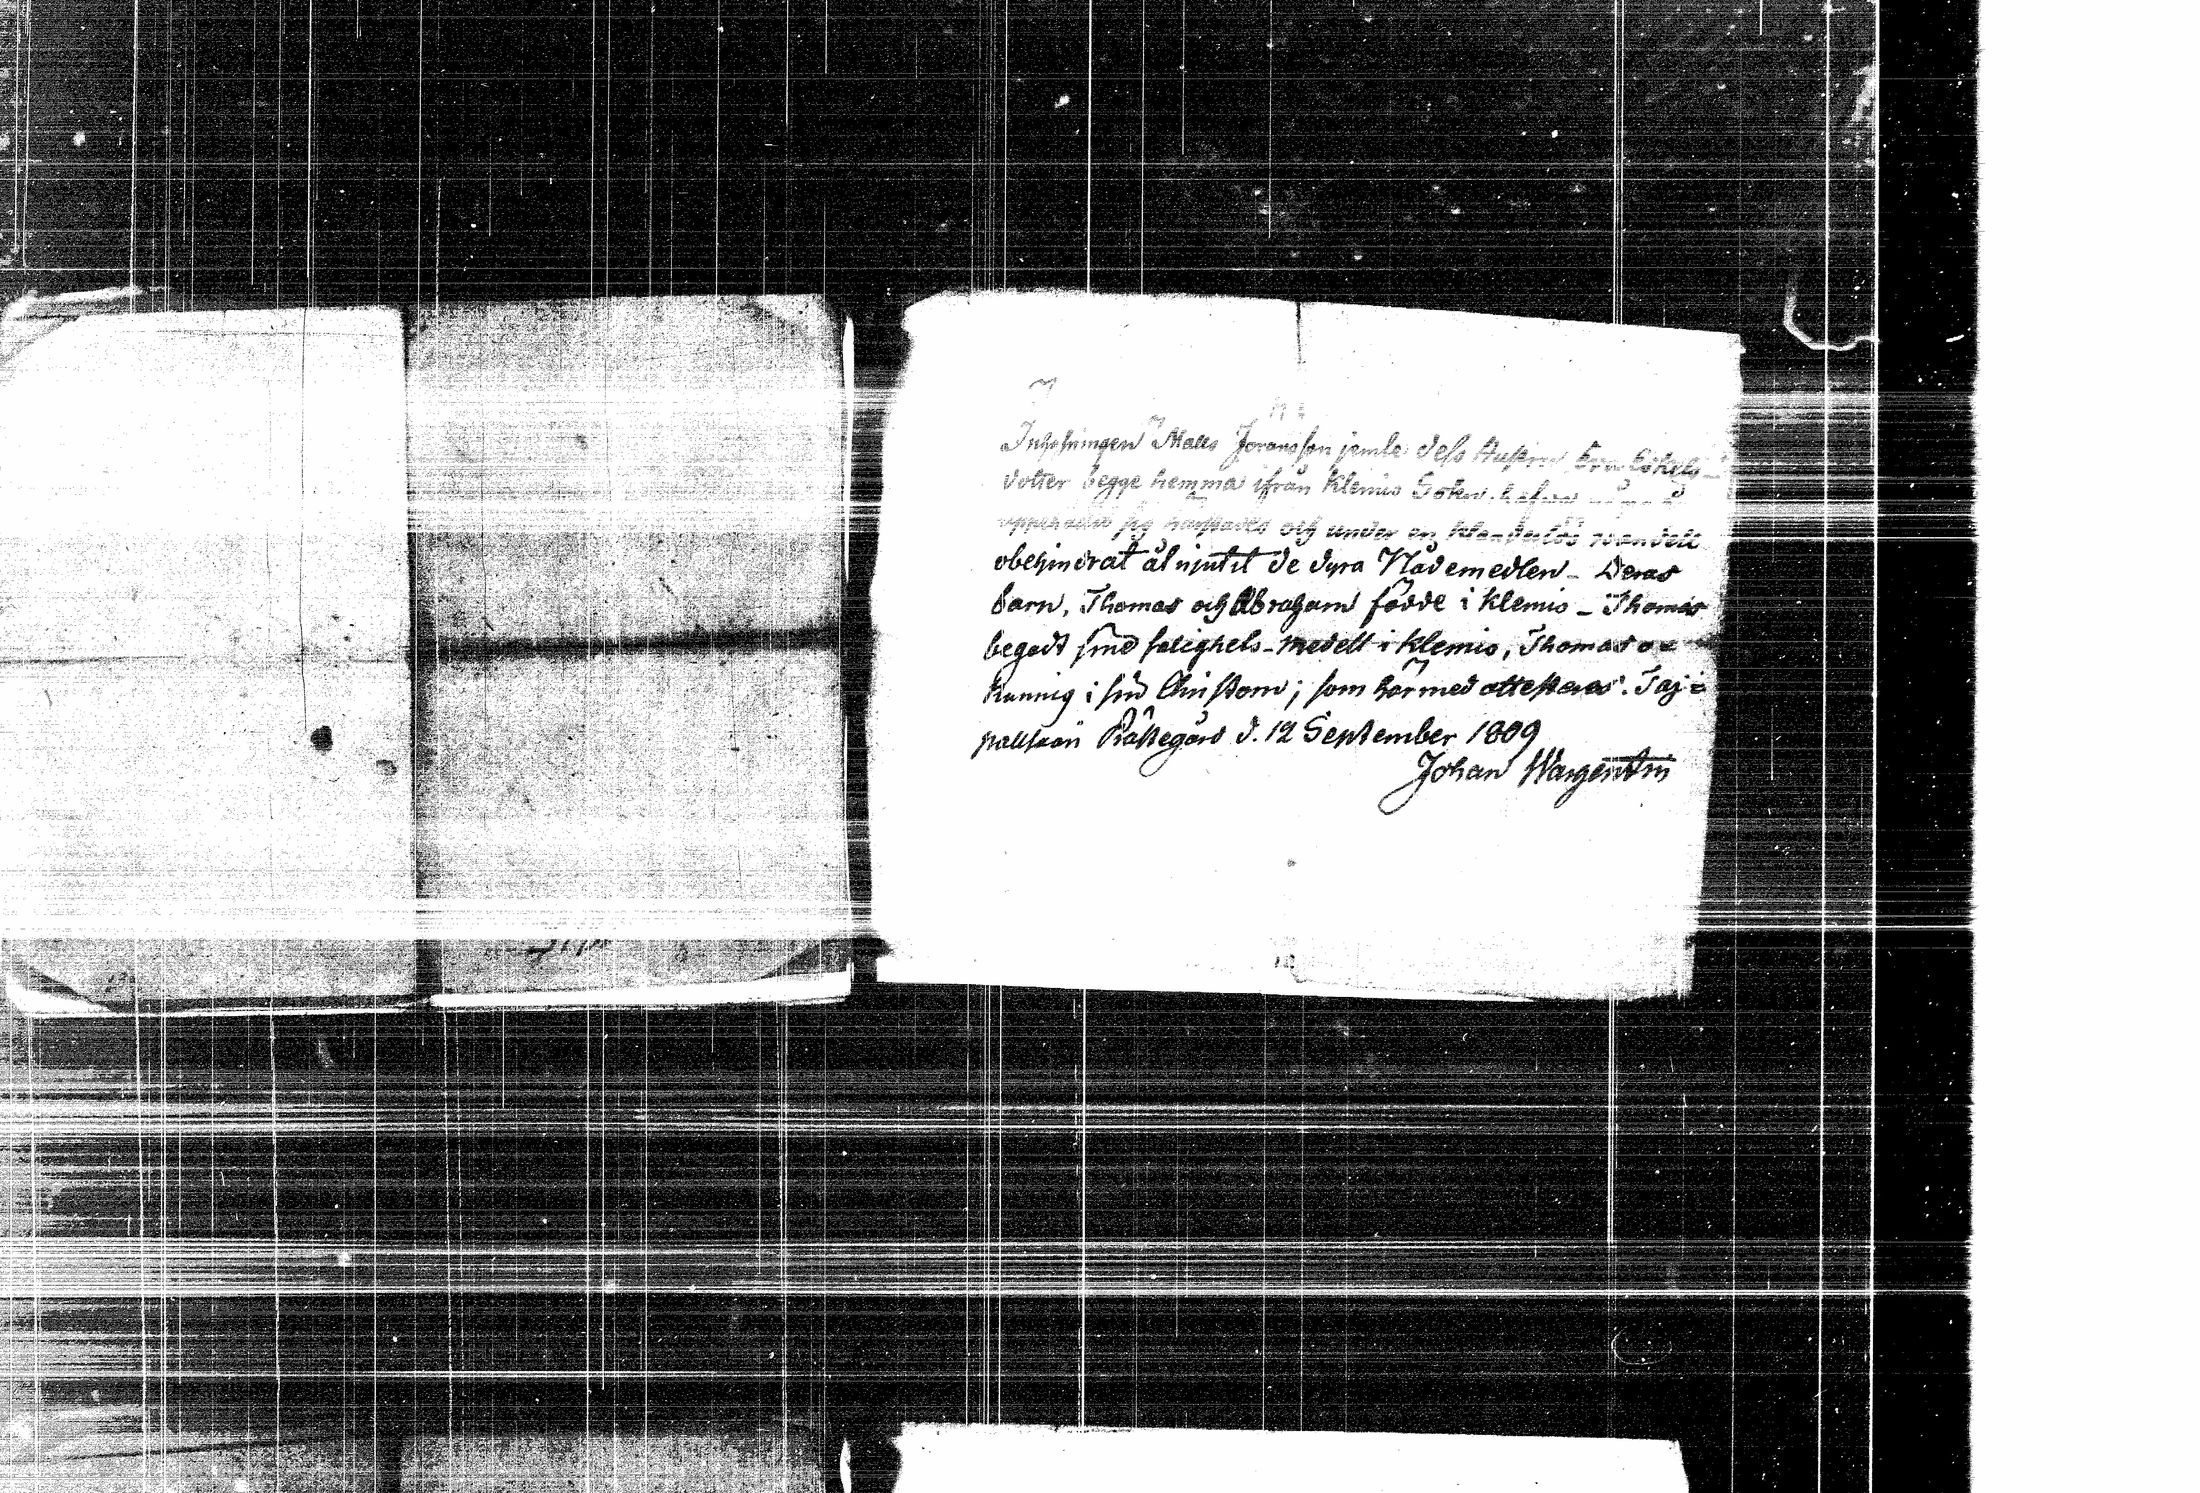 Inhysningen Matts Joransson jemte dess Hustru Eva Eskels-
dotter begge hemma ifrån Klemis Sokn hafva
uppehållit sig härstädes och under en klanderlös wandell
obehindrat åtnjutit de dyra Nådemedlen - Deras
barn, Thomas och Abraham födde i Klemis - Thomas
begådt sine salighets-medell i Klemis, Thomas
kunnig i sin Christom; som härmed attesteras.
Råstegård d. 12 September 1809
Johan Wargentin